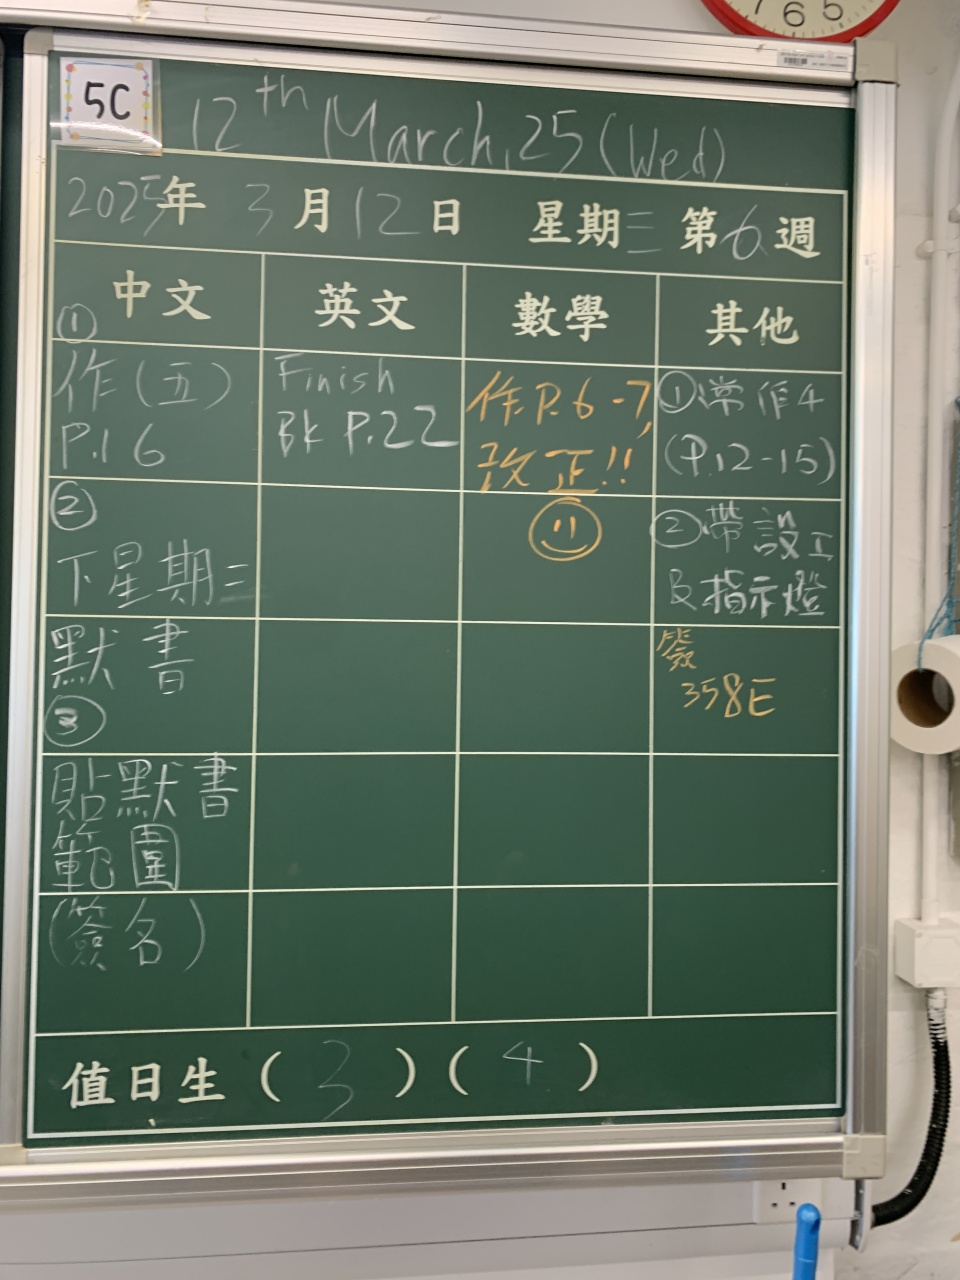 7 6 5
5C
12th March, 25 (Wed)
2025年 3月12日 星期三 第6週
中文
①
作(五)
P.16
②
下星期三
默書
③
貼默書
範圍
(簽名)
英文
Finish
Bk P.22
數學
作P.6-7,
改正!!
其他
①常作4
(P.12-15)
②帶設工
及指示燈
簽
358E
值日生(3)(4)